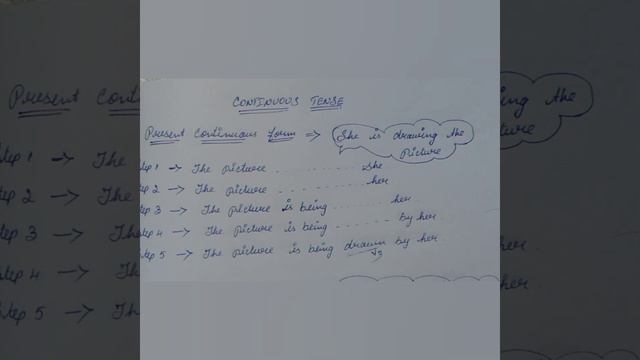 CONTINUOUS TENSE
Present Continuous Form => She is drawing the picture
Step 1 -> The picture .............. she
Step 2 -> The picture .............. her
Step 3 -> The picture is being ........ her
Step 4 -> The picture is being ........ by her
Step 5 -> The picture is being drawn by her
V3